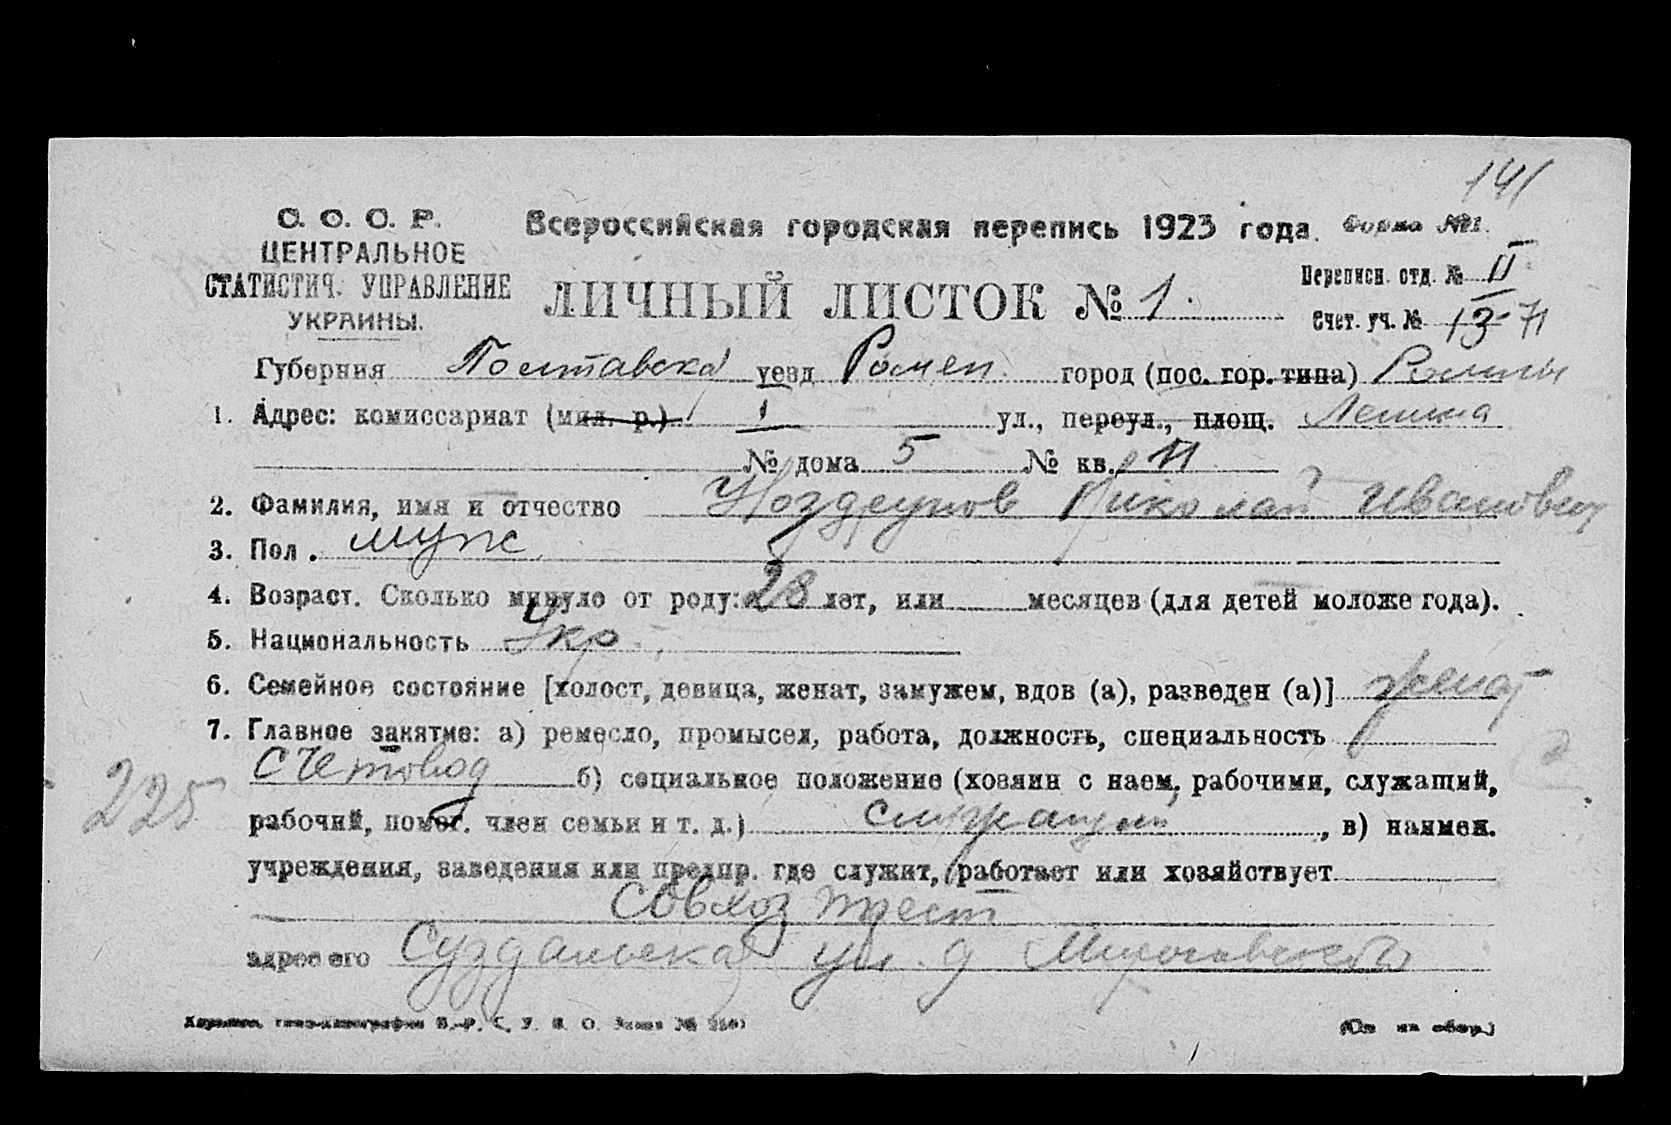 141
С. С. С. Р. Всероссийская городская перепись 1923 года. Форма №1.
ЦЕНТРАЛЬНОЕ Переписн. отд. № II
СТАТИСТИЧ. УПРАВЛЕНИЕ ЛИЧНЫЙ ЛИСТОК № 1.
УКРАИНЫ. Счет. уч. № 13-71
Губерния Полтавска уезд Ромен город (пос. гор. типа) Ромны
1. Адрес: комиссариат (мил. р.) 1 ул., переул., площ. Ленина
№ дома 5 № кв. 11
2. Фамилия, имя и отчество Николай Иванович
3. Пол. муж
4. Возраст. Сколько минуло от роду: 28 лет, или месяцев (для детей моложе года).
5. Национальность Укр.
6. Семейное состояние [холост, девица, женат, замужем, вдов (а), разведен (а)] женат
7. Главное занятие: а) ремесло, промысел, работа, должность, специальность
счетовод б) социальное положение (хозяин с наем. рабочими, служащий,
225
рабочий, помог. член семьи и т. д.) служащий, в) наимен.
учреждения, заведения или предпр. где служит, работает или хозяйствует
Совхоз трест
адрес его Суздальска ул. д
(См на обор.)